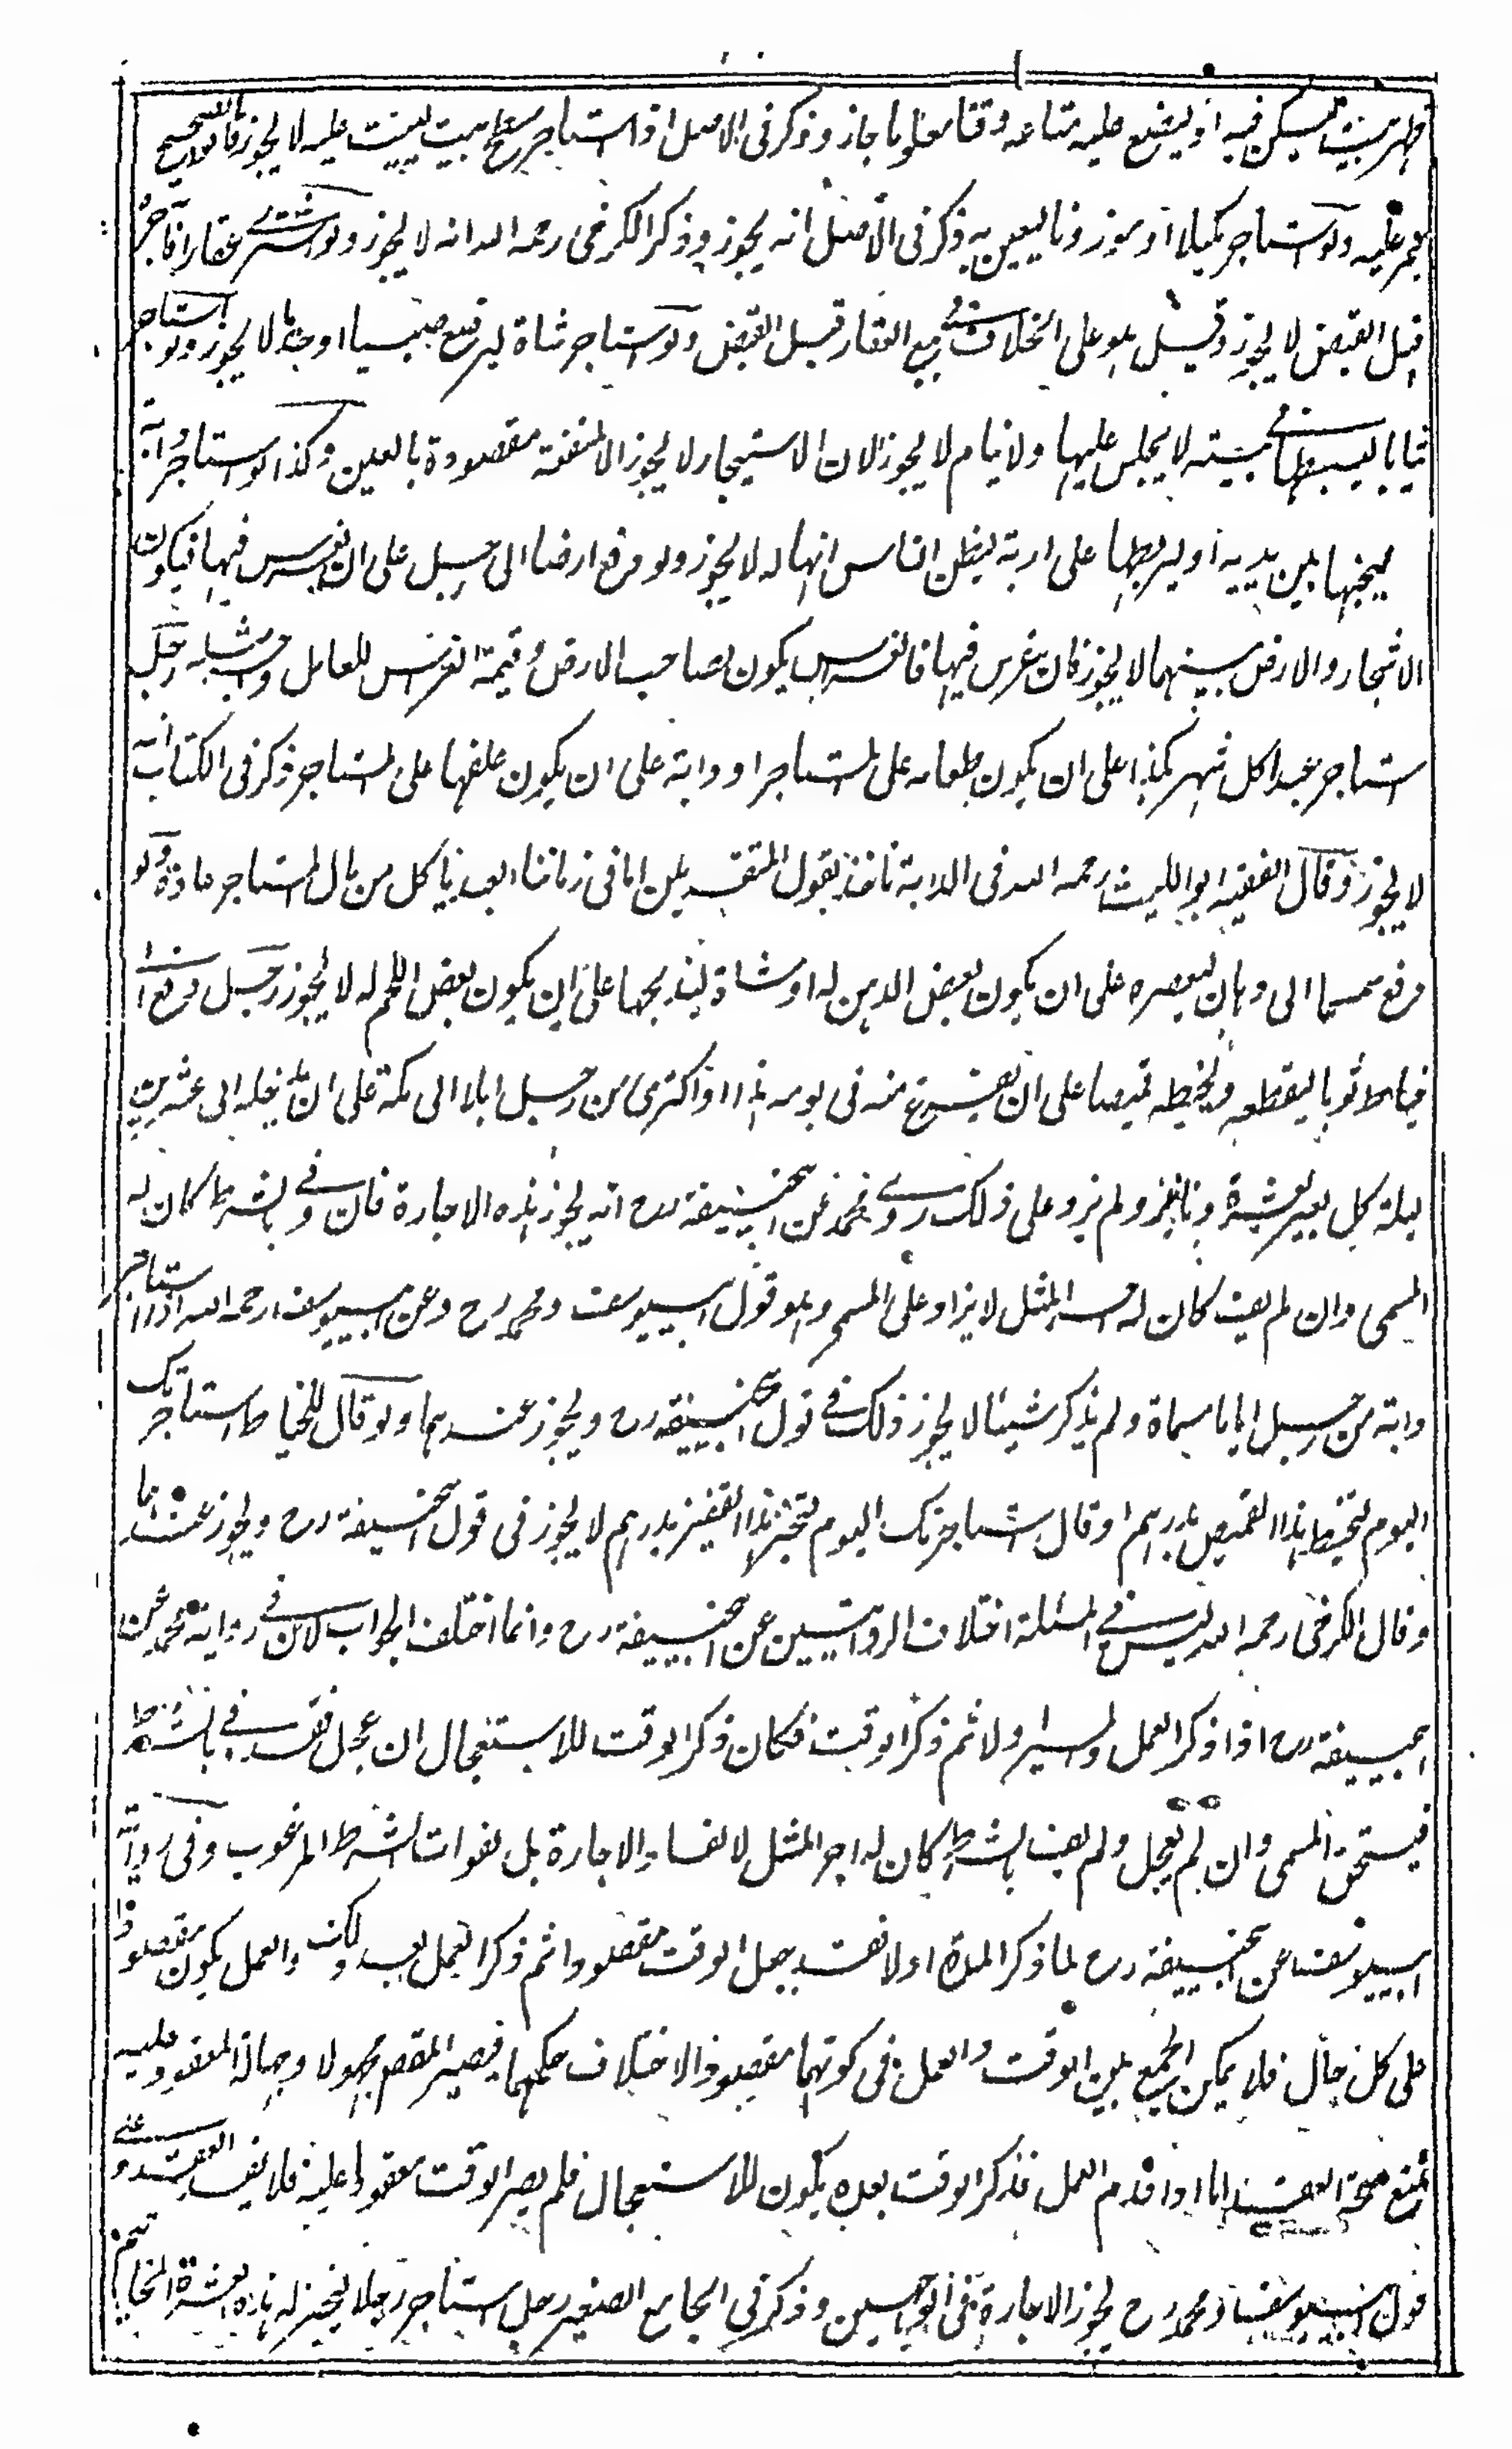 ظهر بيت ليسكن فيه او ليضع عليه متاعه وقتا معلوما جاز وذكر فى الاصل اذا استاجر سطح بيت ليبيت عليه لا يجوز
عليه ولو استاجر مكيلا او موزونا ليعين به ذكر فى الاصل انه يجوز وذكر الكرخى رحمه الله انه لا يجوز ولو اشترى عقارا فآجر
قبل القبض لا يجوز وقيل هو على الخلاف فى بيع العقار قبل القبض ولو استاجر شاة ليرضع صبيا او جديا لا يجوز ولو استاجر
ثيابا ليبسطها فى بيته لا يجلس عليها ولا ينام لا يجوز لان الاستيجار لا يجوز الا لمنفعة مقصودة بالعين وكذا لو استاجر دابة
ليجنبها بين يديه او ليربطها على اربة ليظن الناس انها له لا يجوز ولو دفع ارضا الى رجل على ان يغرس فيها فيكون
الاشجار والارض بينهما لا يجوز فان غرس فيها فالغرس يكون لصاحب الارض وقيمة الغرس للعامل واجر مثله رجل
استاجر عبدا كل شهر بكذا على ان يكون طعامه على المستاجر او دابة على ان يكون علفها على المستاجر ذكر فى الكتاب انه
لا يجوز وقال الفقيه ابو الليث رحمه الله فى الدابة ناخذ بقول المتقدمين اما فى زماننا العبد ياكل من مال المستاجر عادة ولو
دفع سمسما الى دهان ليعصره على ان يكون بعض الدهن له او شاة ليذبحها على ان يكون بعض اللحم له لا يجوز رجل دفع الى
خياط ثوبا ليقطعه ويخيطه قميصا على ان يفرغ منه فى يومه هذا او اكترى من رجل ابلا الى مكة على ان يدخله الى عشرين
ليلة كل بعير بعشرة دنانير ولم يزد على ذلك روى محمد عن ابى حنيفة رح انه يجوز هذه الاجارة فان وفى بالشرط كان له
المسمى وان لم يف كان له اجر المثل لا يزاد على المسمى وهو قول ابى يوسف ومحمد رح وعن ابى يوسف رحمه الله اذا استاجر
دابة من رجل اياما مسماة ولم يذكر شيئا لا يجوز ذلك فى قول ابى حنيفة رح ويجوز عندهما ولو قال للخياط استاجرتك
اليوم لتخيط هذا القميص بدرهم او قال استاجرتك اليوم لتخبز هذا القفيز بدرهم لا يجوز فى قول ابى حنيفة رح ويجوز عندهما
وقال الكرخى رحمه الله ليس فى المسئلة اختلاف الروايتين عن ابى حنيفة رح وانما اختلف الجواب لان فى رواية محمد عن
ابى حنيفة رح اذا ذكر العمل والسير اولا ثم ذكر الوقت فكان ذكر الوقت للاستعجال ان عجل فقد وفى بالشرط
فيستحق المسمى وان لم يعجل ولم يف بالشرط كان له اجر المثل لا لفساد الاجارة بل لفوات الشرط المرغوب وفى رواية
ابى يوسف عن ابى حنيفة رح لما ذكر المدة اولا فقد جعل الوقت مقصودا ثم ذكر العمل بعد ذلك والعمل يكون مقصودا
على كل حال فلا يمكن الجمع بين الوقت والعمل فى كونهما مقصودا لاختلاف حكمهما فيصير المقصود مجهولا وجهالة المعقود عليه
تمنع صحة العقد اما اذا قدم العمل فذكر الوقت بعده يكون للاستعجال فلم يصر الوقت معقودا عليه فلا يفسد العقد وعلى
قول ابى يوسف ومحمد رح يجوز الاجارة فى الوجهين وذكر فى الجامع الصغير رجل استاجر رجلا ليخبز له هذه العشرة المخاتيم